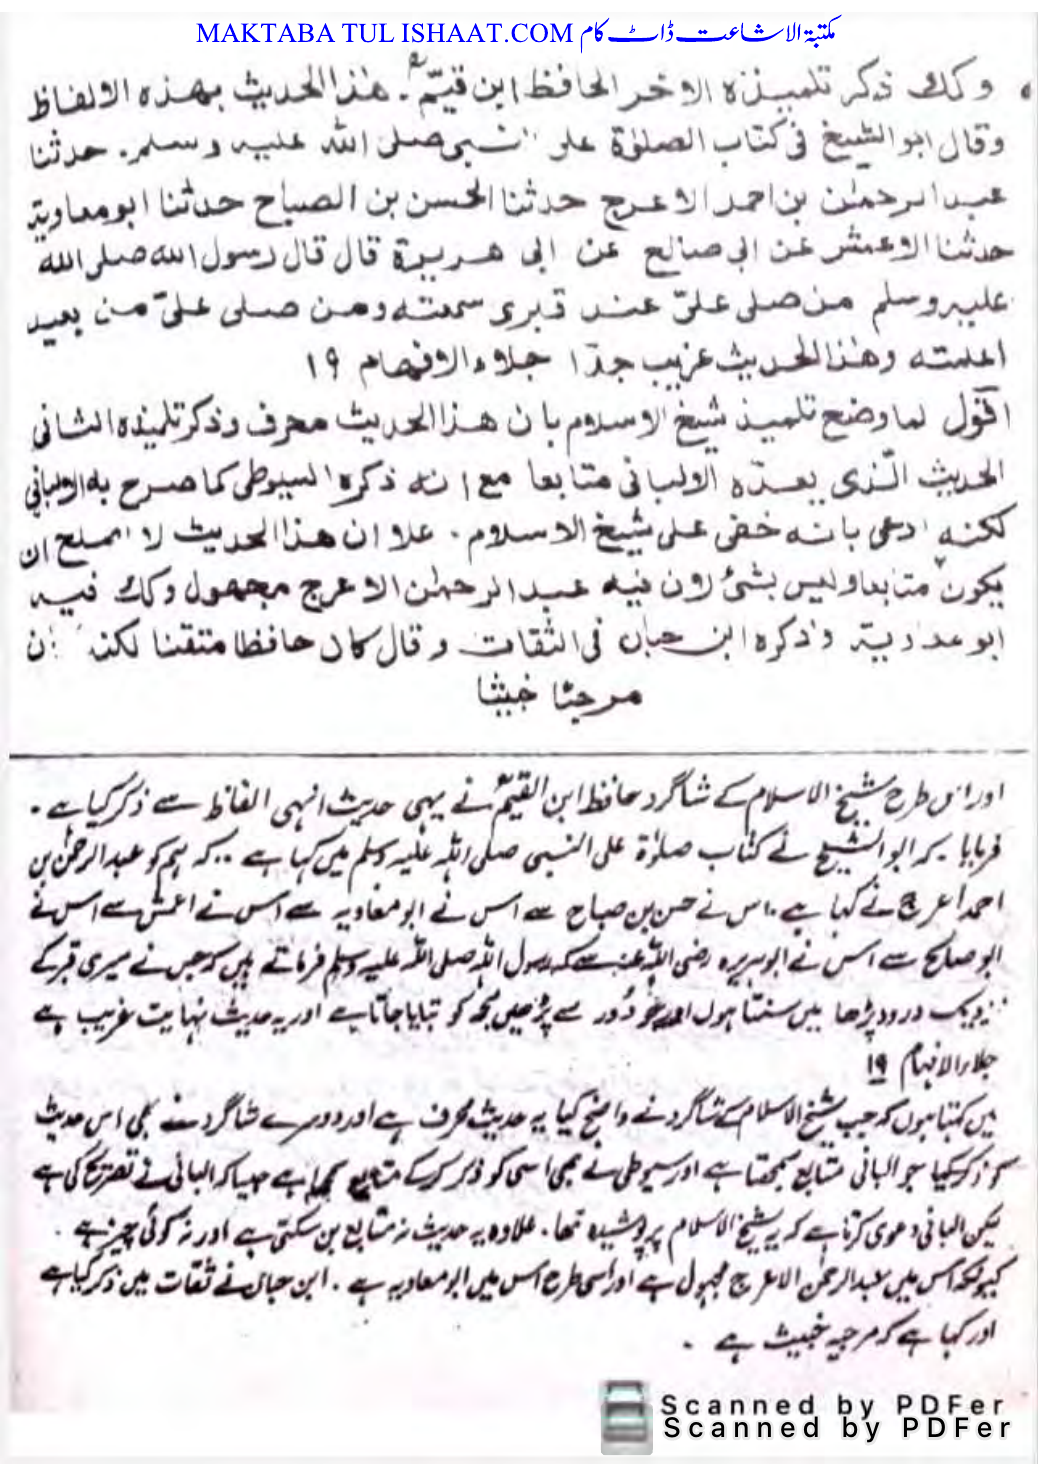 MAKTABA TUL ISHAAT.COM مکتبۃ الاشاعت ڈاٹ کام
وكك ذكر تلميذه الاخر الحافظ ابن قيمؒ. هذا الحديث بهذه الالفاظ
وقال ابو الشيخ فى كتاب الصلوٰة على النبى صلى الله عليه وسلم. حدثنا
عبد الرحمٰن بن احمد الاعرج حدثنا الحسن بن الصباح حدثنا ابو معاوية
حدثنا الاعمش عن ابى صالح عن ابى هريرة قال قال رسول الله صلى الله
عليه وسلم من صلى علىّ عند قبرى سمعته ومن صلى علىّ من بعيد
اعلمته وهذا الحديث غريب جدًا جلاء الافهام ١٩
اقول لما وضح تلميذ شيخ الاسلام بان هذا الحديث محرف وذكر تلميذه الثانى
الحديث الّذى يعدّه الالبانى متابعا مع انه ذكره السيوطى كما صرح به الالبانى
لكنه ادعى بانه خفى على شيخ الاسلام. علا ان هذا الحديث لا يصلح ان
يكون متابعا وليس بشئ لان فيه عبد الرحمٰن الاعرج مجهول وكك فيه
ابو معاوية وذكره ابن حبان فى الثقات وقال كان حافظا متقنا لكنه كان
مرجئا خبيثا
اور اس طرح شیخ الاسلام کے شاگرد حافظ ابن القیمؒ نے یہی حدیث انہی الفاظ سے ذکر کیا ہے۔
فرمایا۔ کہ ابو الشیخ نے کتاب صلوٰۃ علی النبی صلی اللہ علیہ وسلم میں کہا ہے۔ کہ ہم کو عبد الرحمٰن بن
احمد اعرج نے کہا ہے۔ اس نے حسن بن صباح سے اس نے ابو معاویہ سے اس نے اعمش سے اس نے
ابو صالح سے اس نے ابو ہریرہ رضی اللہ عنہ سے کہ رسول اللہ صلی اللہ علیہ وسلم فرماتے ہیں کہ جس نے میری قبر کے
نزدیک درود پڑھا میں سنتا ہوں اور جو دُور سے پڑھیں مجھ کو بتایا جاتا ہے اور یہ حدیث نہایت غریب ہے
جلاء الافہام ١٩
میں کہتا ہوں کہ جب شیخ الاسلام کے شاگرد نے واضح کیا یہ حدیث محرف ہے اور دوسرے شاگرد نے بھی اس حدیث
کو ذکر کیا جو البانی متابع سمجھتا ہے اور سیوطی نے بھی اسی کو ذکر کر کے متابع کہا ہے جیسا کہ البانی نے تصریح کی ہے
لیکن البانی دعوی کرتا ہے کہ یہ شیخ الاسلام پر پوشیدہ تھا۔ علاوہ یہ حدیث نہ متابع بن سکتی ہے اور نہ کوئی چیز ہے۔
کیونکہ اس میں عبد الرحمٰن الاعرج مجہول ہے اور اسی طرح اس میں ابو معاویہ ہے۔ ابن حبان نے ثقات میں ذکر کیا ہے
اور کہا ہے کہ مرجیہ خبیث ہے۔
Scanned by PDFer
Scanned by PDFer